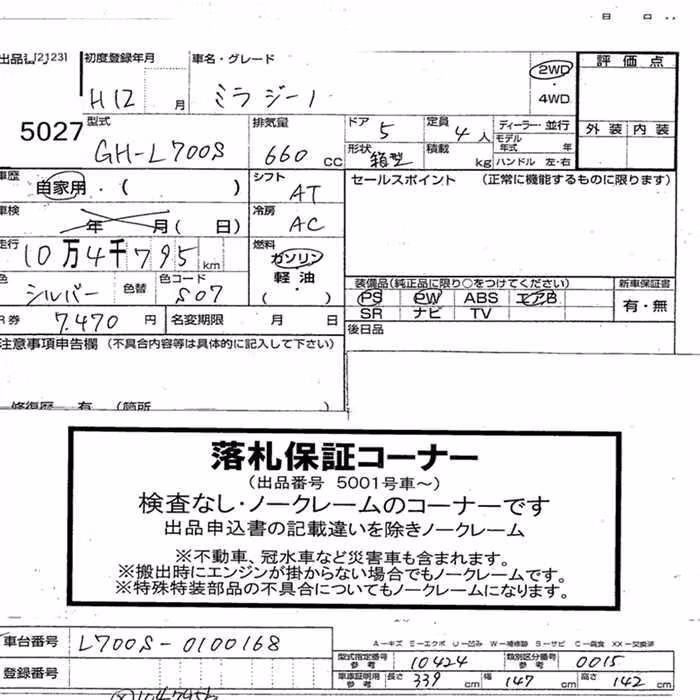 出品 [2123] 初度登録年月 車名・グレード 2WD 評価点
H12 月 ミラジーノ ・4WD
5027 型式 排気量 ドア 5 定員 4人 ディーラー・並行 外装 内装
GH-L700S 660 CC 形状 箱型 積載 kg モデル年式 年 ハンドル 左・右
車歴 自家用・( ) シフト AT セールスポイント (正常に機能するものに限ります)
車検 年 月( 日) 冷房 AC
走行 10万4千795 km 燃料 ガソリン
色 シルバー 色替 色コード S07 軽油・( ) 装備品(純正品に限り○をつけてください) 新車保証書
PS PW ABS エアB 有・無
SR ナビ TV
R券 7.470 円 名変期限 月 日 後日品
注意事項申告欄 (不具合内容等は具体的に記入して下さい)
修復歴 有 (箇所 )
落札保証コーナー
(出品番号 5001号車～)
検査なし・ノークレームのコーナーです
出品申込書の記載違いを除きノークレーム
※不動車、冠水車など災害車も含まれます。
※搬出時にエンジンが掛からない場合でもノークレームです。
※特殊特装部品の不具合についてもノークレームになります。
車台番号 L700S-0100168
A-キズ E-エクボ U-凹み W-補修跡 S-サビ C-腐食 XX-交換済
型式指定番号 参考 10424 類別区分番号 参考 0015
登録番号 車庫証明用 参考 長さ 339 cm 幅 147 cm 高さ 142 cm